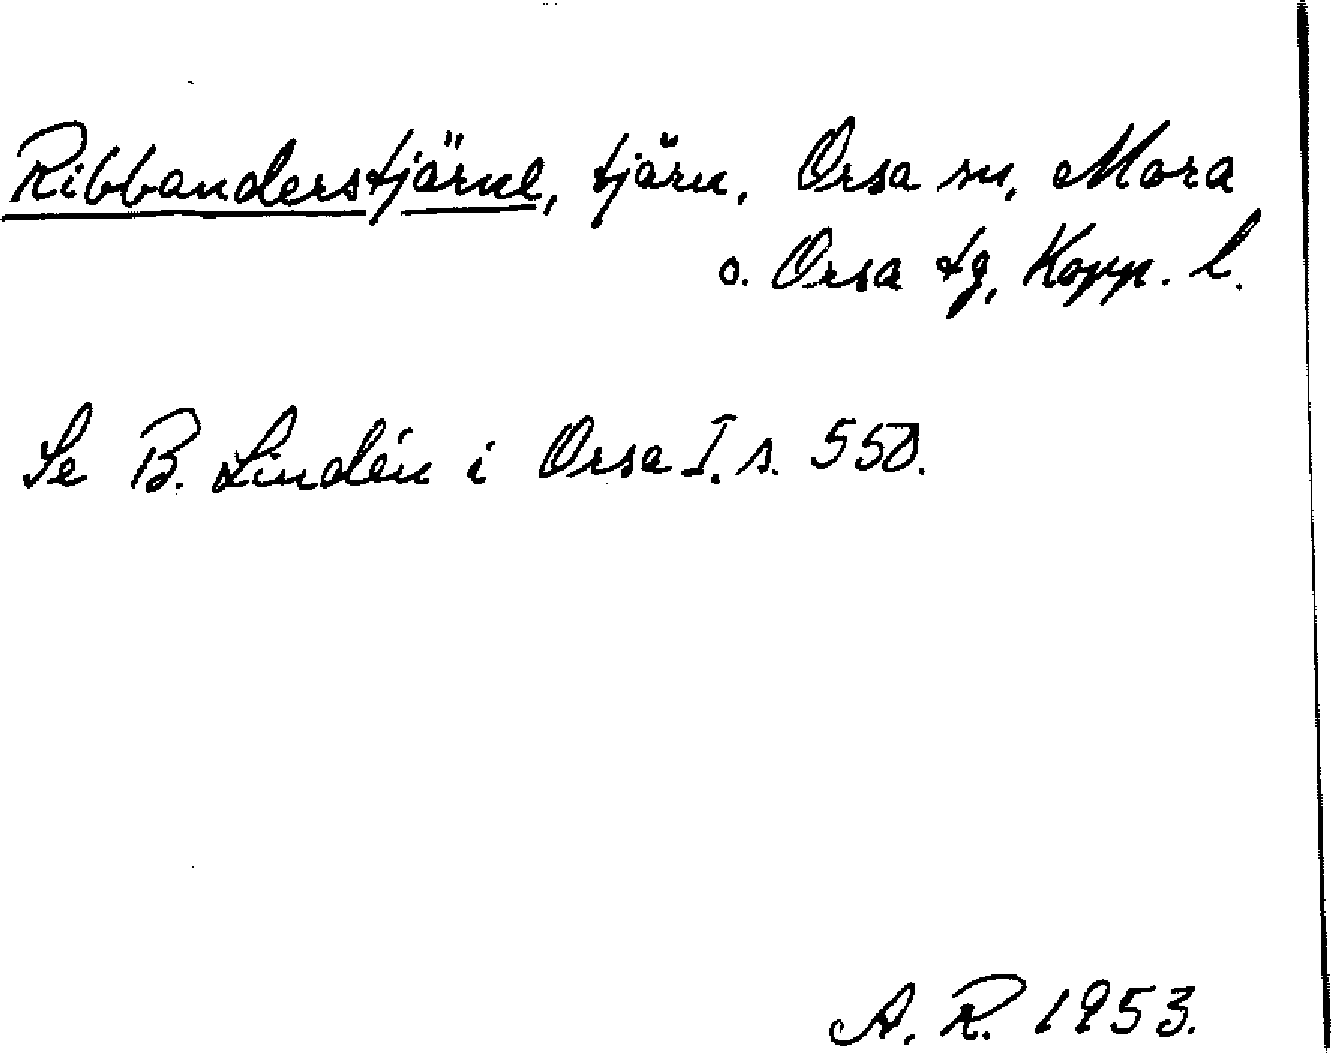 Ribbanderstjärne, tjärn, Orsa sn, Mora
o. Orsa tg, Kopp. l.
Se B. Lindén i Orsa I. s. 550.
A. R. 1953.